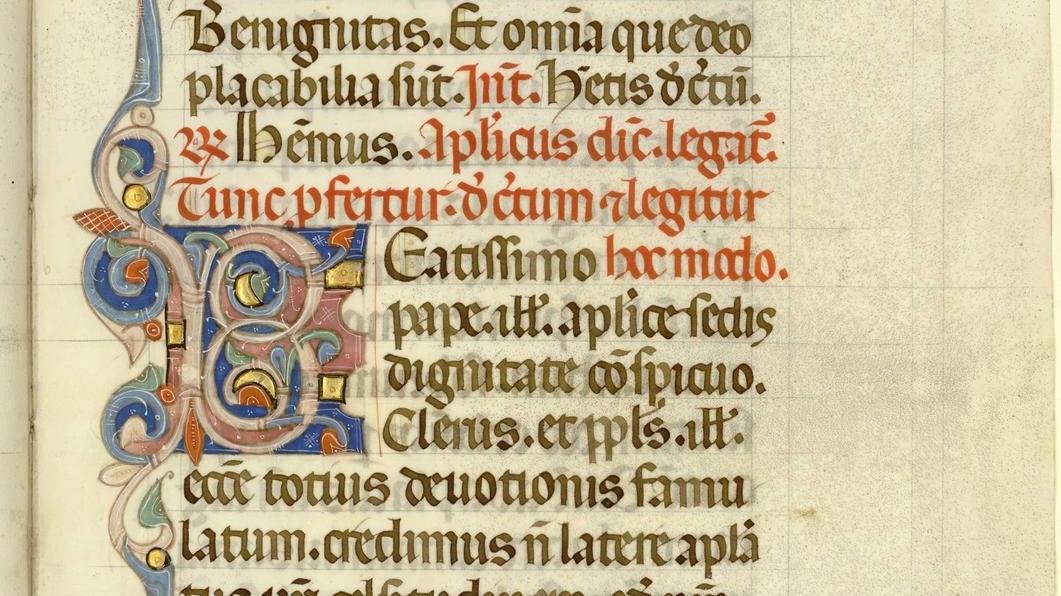 Benignitas. Et om̄ia que deo
placabilia sūt. Int̄. Hetis d̓c̓tū.
℞ Hēmus. Aplicus dic̄. legat̄.
Tunc ꝓfertur. d̓c̓tum ⁊ legitur
Eatissimo hoc modo.
pape. ill̄. aplice sedis
dignitate cōspicuo.
Clerus. et ppl̄s. ill̄.
ecc̄e totius deuotionis famu
latum. credimus n̄ latere aplā